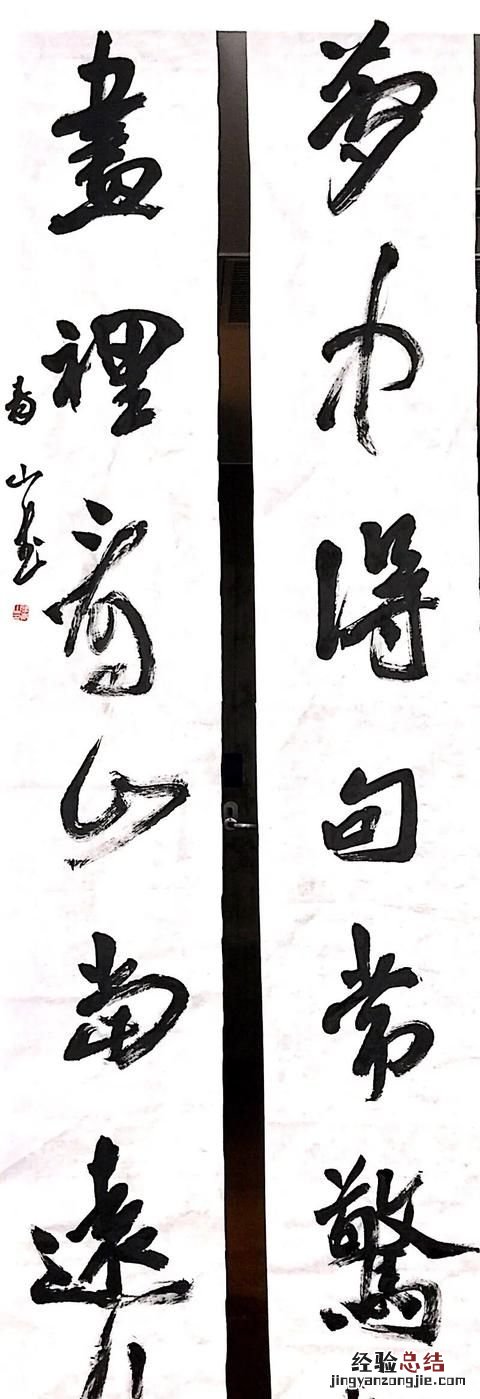 夢中得句常驚
畫裡看山當遠
山
经验总结
jingyanzongjie.com